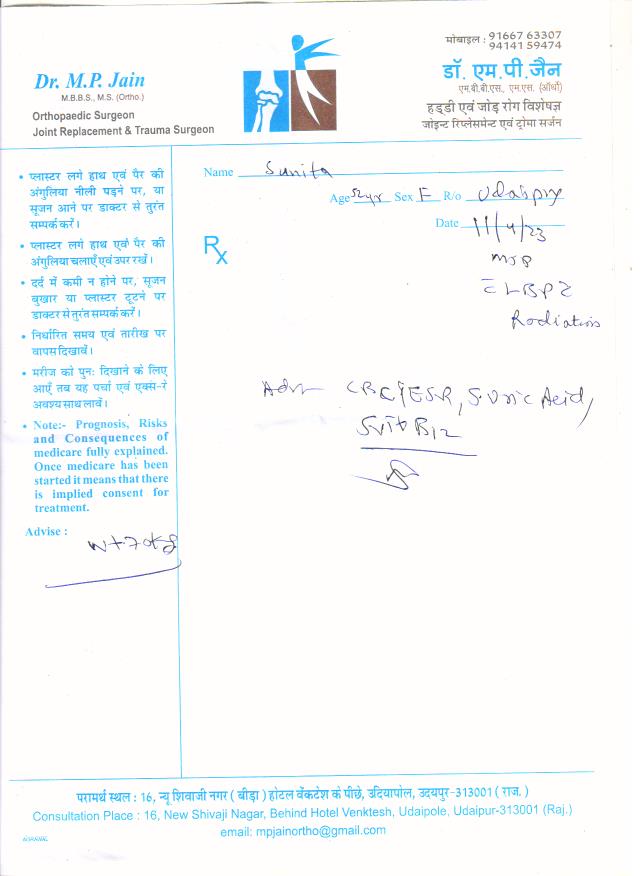 मोबाइल : 91667 63307
94141 59474
Dr. M.P. Jain
M.B.B.S., M.S. (Ortho.)
Orthopaedic Surgeon
Joint Replacement & Trauma Surgeon
डॉ. एम.पी.जैन
एम.बी.बी.एस., एम.एस. (ऑर्थो)
हड्डी एवं जोड़ रोग विशेषज्ञ
जोइन्ट रिप्लेसमेन्ट एवं ट्रोमा सर्जन
• प्लास्टर लगे हाथ एवं पैर की
अंगुलिया नीली पड़ने पर, या
सूजन आने पर डाक्टर से तुरंत
सम्पर्क करें।
• प्लास्टर लगे हाथ एवं पैर की
अंगुलिया चलाएँ एवं उपर रखें।
• दर्द में कमी न होने पर, सूजन
बुखार या प्लास्टर टूटने पर
डाक्टर से तुरंत सम्पर्क करें।
• निर्धारित समय एवं तारीख पर
वापस दिखावें।
• मरीज को पुनः दिखाने के लिए
आएँ तब यह पर्चा एवं एक्स-रे
अवश्य साथ लावें।
• Note:- Prognosis, Risks
and Consequences of
medicare fully explained.
Once medicare has been
started it means that there
is implied consent for
treatment.
Advise :
Wt 70kg
Name Sunita
Age 52yr Sex F R/o Udaipur
Date 11/4/23
Rx
LBP
Radiation
Adv CBC, ESR, S. Uric Acid,
S Vit B12
परामर्थ स्थल : 16, न्यू शिवाजी नगर ( बीड़ा ) होटल वेंकटेश के पीछे, उदियापोल, उदयपुर-313001 ( राज. )
Consultation Place : 16, New Shivaji Nagar, Behind Hotel Venktesh, Udaipole, Udaipur-313001 (Raj.)
email: mpjainortho@gmail.com